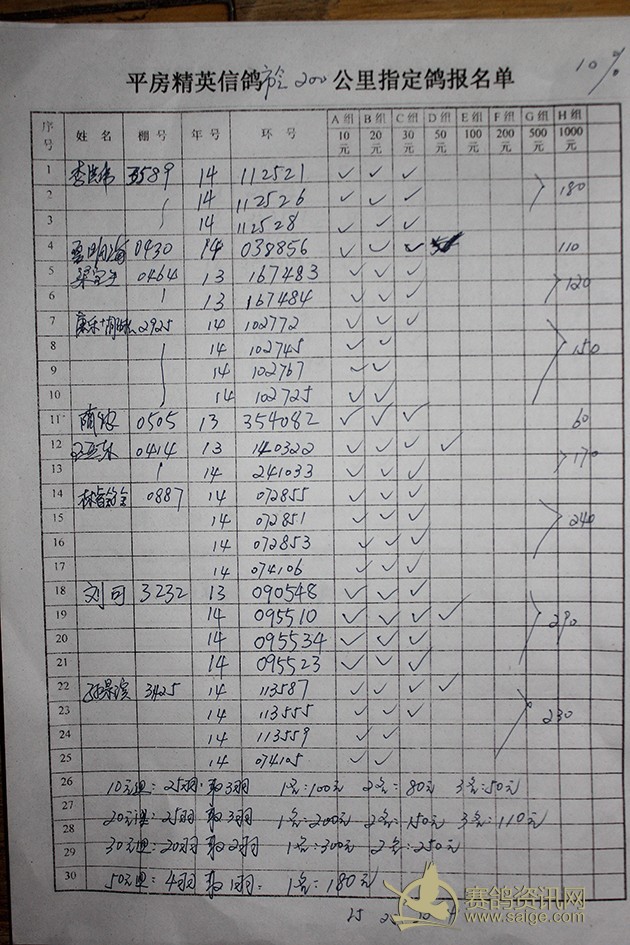 10%
平房精英信鸽市会200公里指定鸽报名单
序号 姓名 棚号 年号 环号 A组10元 B组20元 C组30元 D组50元 E组100元 F组200元 G组500元 H组1000元
1 5589 14 112521 ✓ ✓ ✓
2 14 112526 ✓ ✓ ✓ 180
3 14 112528 ✓ ✓ ✓
4 0430 14 038856 ✓ ✓ ✓ 110
5 0464 13 167483 ✓ ✓ ✓
6 13 167484 ✓ ✓ ✓ 120
7 2925 14 102772 ✓ ✓ ✓
8 14 102745 ✓ ✓ 150
9 14 102767 ✓ ✓
10 14 102725 ✓ ✓
11 0505 13 354082 ✓ ✓ ✓ 60
12 0414 13 140322 ✓ ✓ ✓ ✓ 170
13 14 241033 ✓ ✓ ✓
14 0887 14 072855 ✓ ✓ ✓
15 14 072851 ✓ ✓ ✓ 240
16 14 072853 ✓ ✓ ✓
17 14 074106 ✓ ✓ ✓
18 刘可 3232 13 090548 ✓ ✓ ✓
19 14 095510 ✓ ✓ ✓ ✓ 290
20 14 095534 ✓ ✓ ✓
21 14 095523 ✓ ✓ ✓
22 3425 14 113587 ✓ ✓ ✓ ✓
23 14 113555 ✓ ✓ ✓ 230
24 14 113559 ✓ ✓
25 14 074105 ✓ ✓
26 10元组:25羽取3羽 1名:100元 2名:80元 3名:50元
27
28 20元组:25羽取3羽 1名:200元 2名:150元 3名:110元
29 30元组:20羽取2羽 1名:300元 2名:250元
30 50元组:4羽取1羽: 1名:180元
25
赛鸽资讯网
www.saige.com